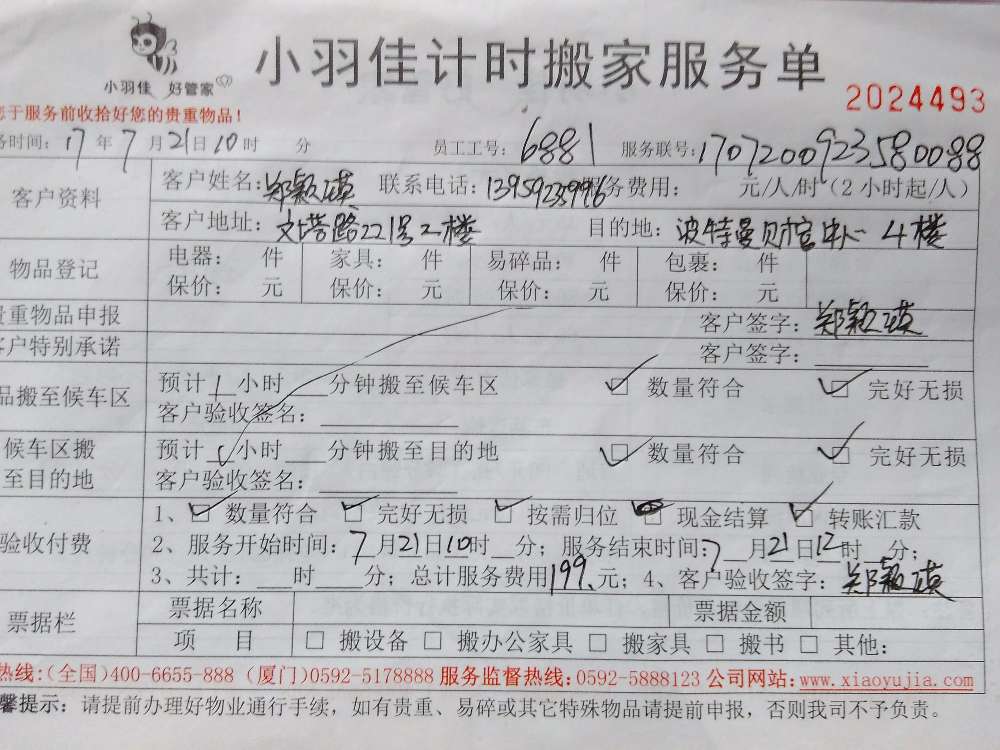 小羽佳 好管家
小羽佳计时搬家服务单
2024493
于服务前收拾好您的贵重物品！
务时间：17年7月21日10时 分 员工工号：6881 服务联号：1707200923580088
客户资料 客户姓名：郑颖瑛 联系电话：13959235996 服务费用： 元/人/时（2小时起/人）
客户地址：文塔路221号2楼 目的地：波特曼财富中心4楼
物品登记 电器： 件 家具： 件 易碎品： 件 包裹： 件
保价： 元 保价： 元 保价： 元 保价： 元
贵重物品申报 客户签字：郑颖瑛
客户特别承诺 客户签字：
品搬至候车区 预计1小时 分钟搬至候车区 ☑ 数量符合 ☑ 完好无损
客户验收签名：
候车区搬至目的地 预计1小时 分钟搬至目的地 ☑ 数量符合 ☑ 完好无损
客户验收签名：
验收付费 1、☑ 数量符合 ☑ 完好无损 ☑ 按需归位 现金结算 ☑ 转账汇款
2、服务开始时间：7月21日10时 分；服务结束时间：7月21日12时 分；
3、共计： 时 分；总计服务费用199元；4、客户验收签字：郑颖瑛
票据栏 票据名称 票据金额
项 目 □ 搬设备 □ 搬办公家具 □ 搬家具 □ 搬书 □ 其他：
热线:(全国)400-6655-888 (厦门)0592-5178888 服务监督热线:0592-5888123 公司网站:www.xiaoyujia.com
馨提示：请提前办理好物业通行手续，如有贵重、易碎或其它特殊物品请提前申报，否则我司不予负责。